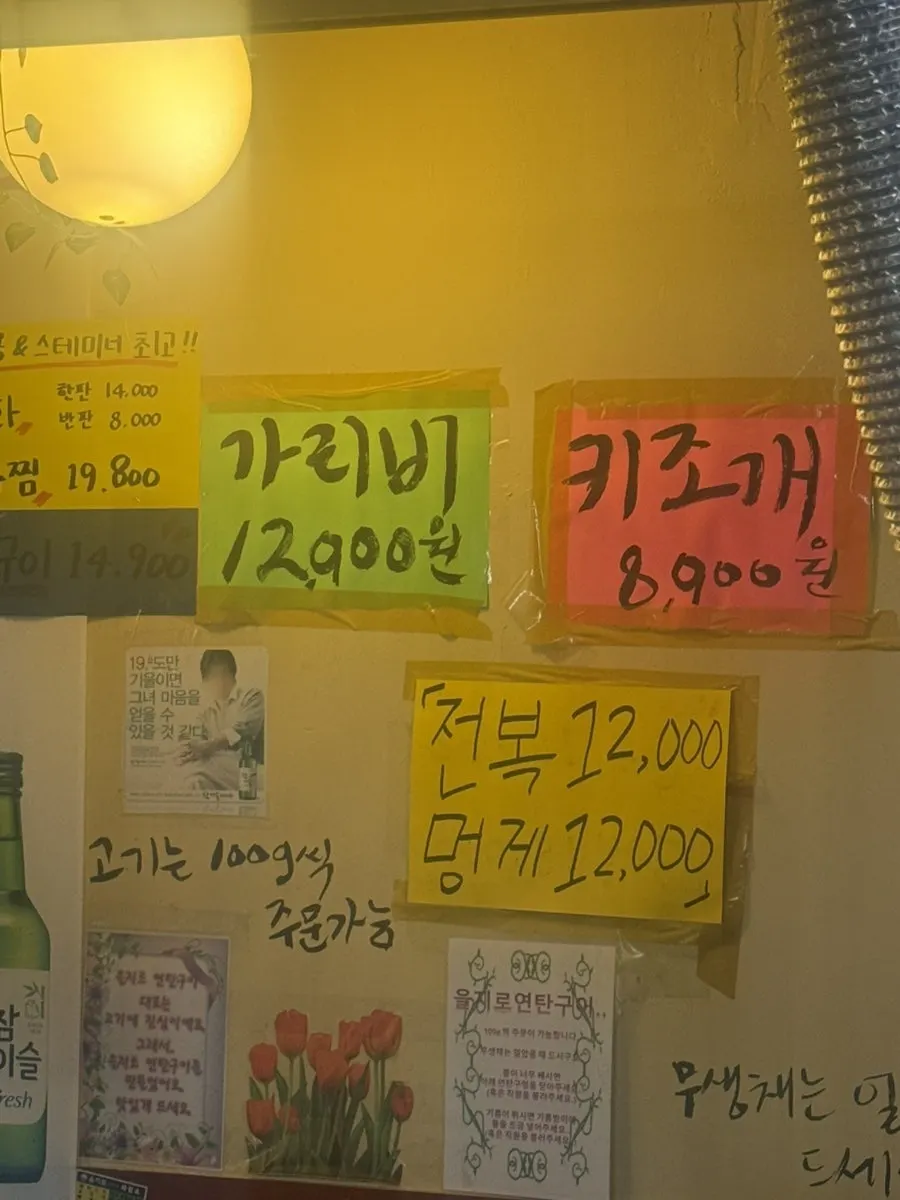 & 스테미너 최고!!
한판 14,000
반판 8.000
찜 19.800
구이 14.900
가리비
12,900원
키조개
8,900원
19.8도만
기울이면
그녀 마음을
얻을 수
있을 것 같다
「전복 12,000
멍게 12,000」
고기는 100g씩
주문가능
을지로 연탄구이
대표는
고기에 진심이에요
그래서,
을지로 연탄구이는
맛있게 드세요
을지로연탄구이..
100g씩 주문이 가능합니다
무생채는
드세
이슬
fresh